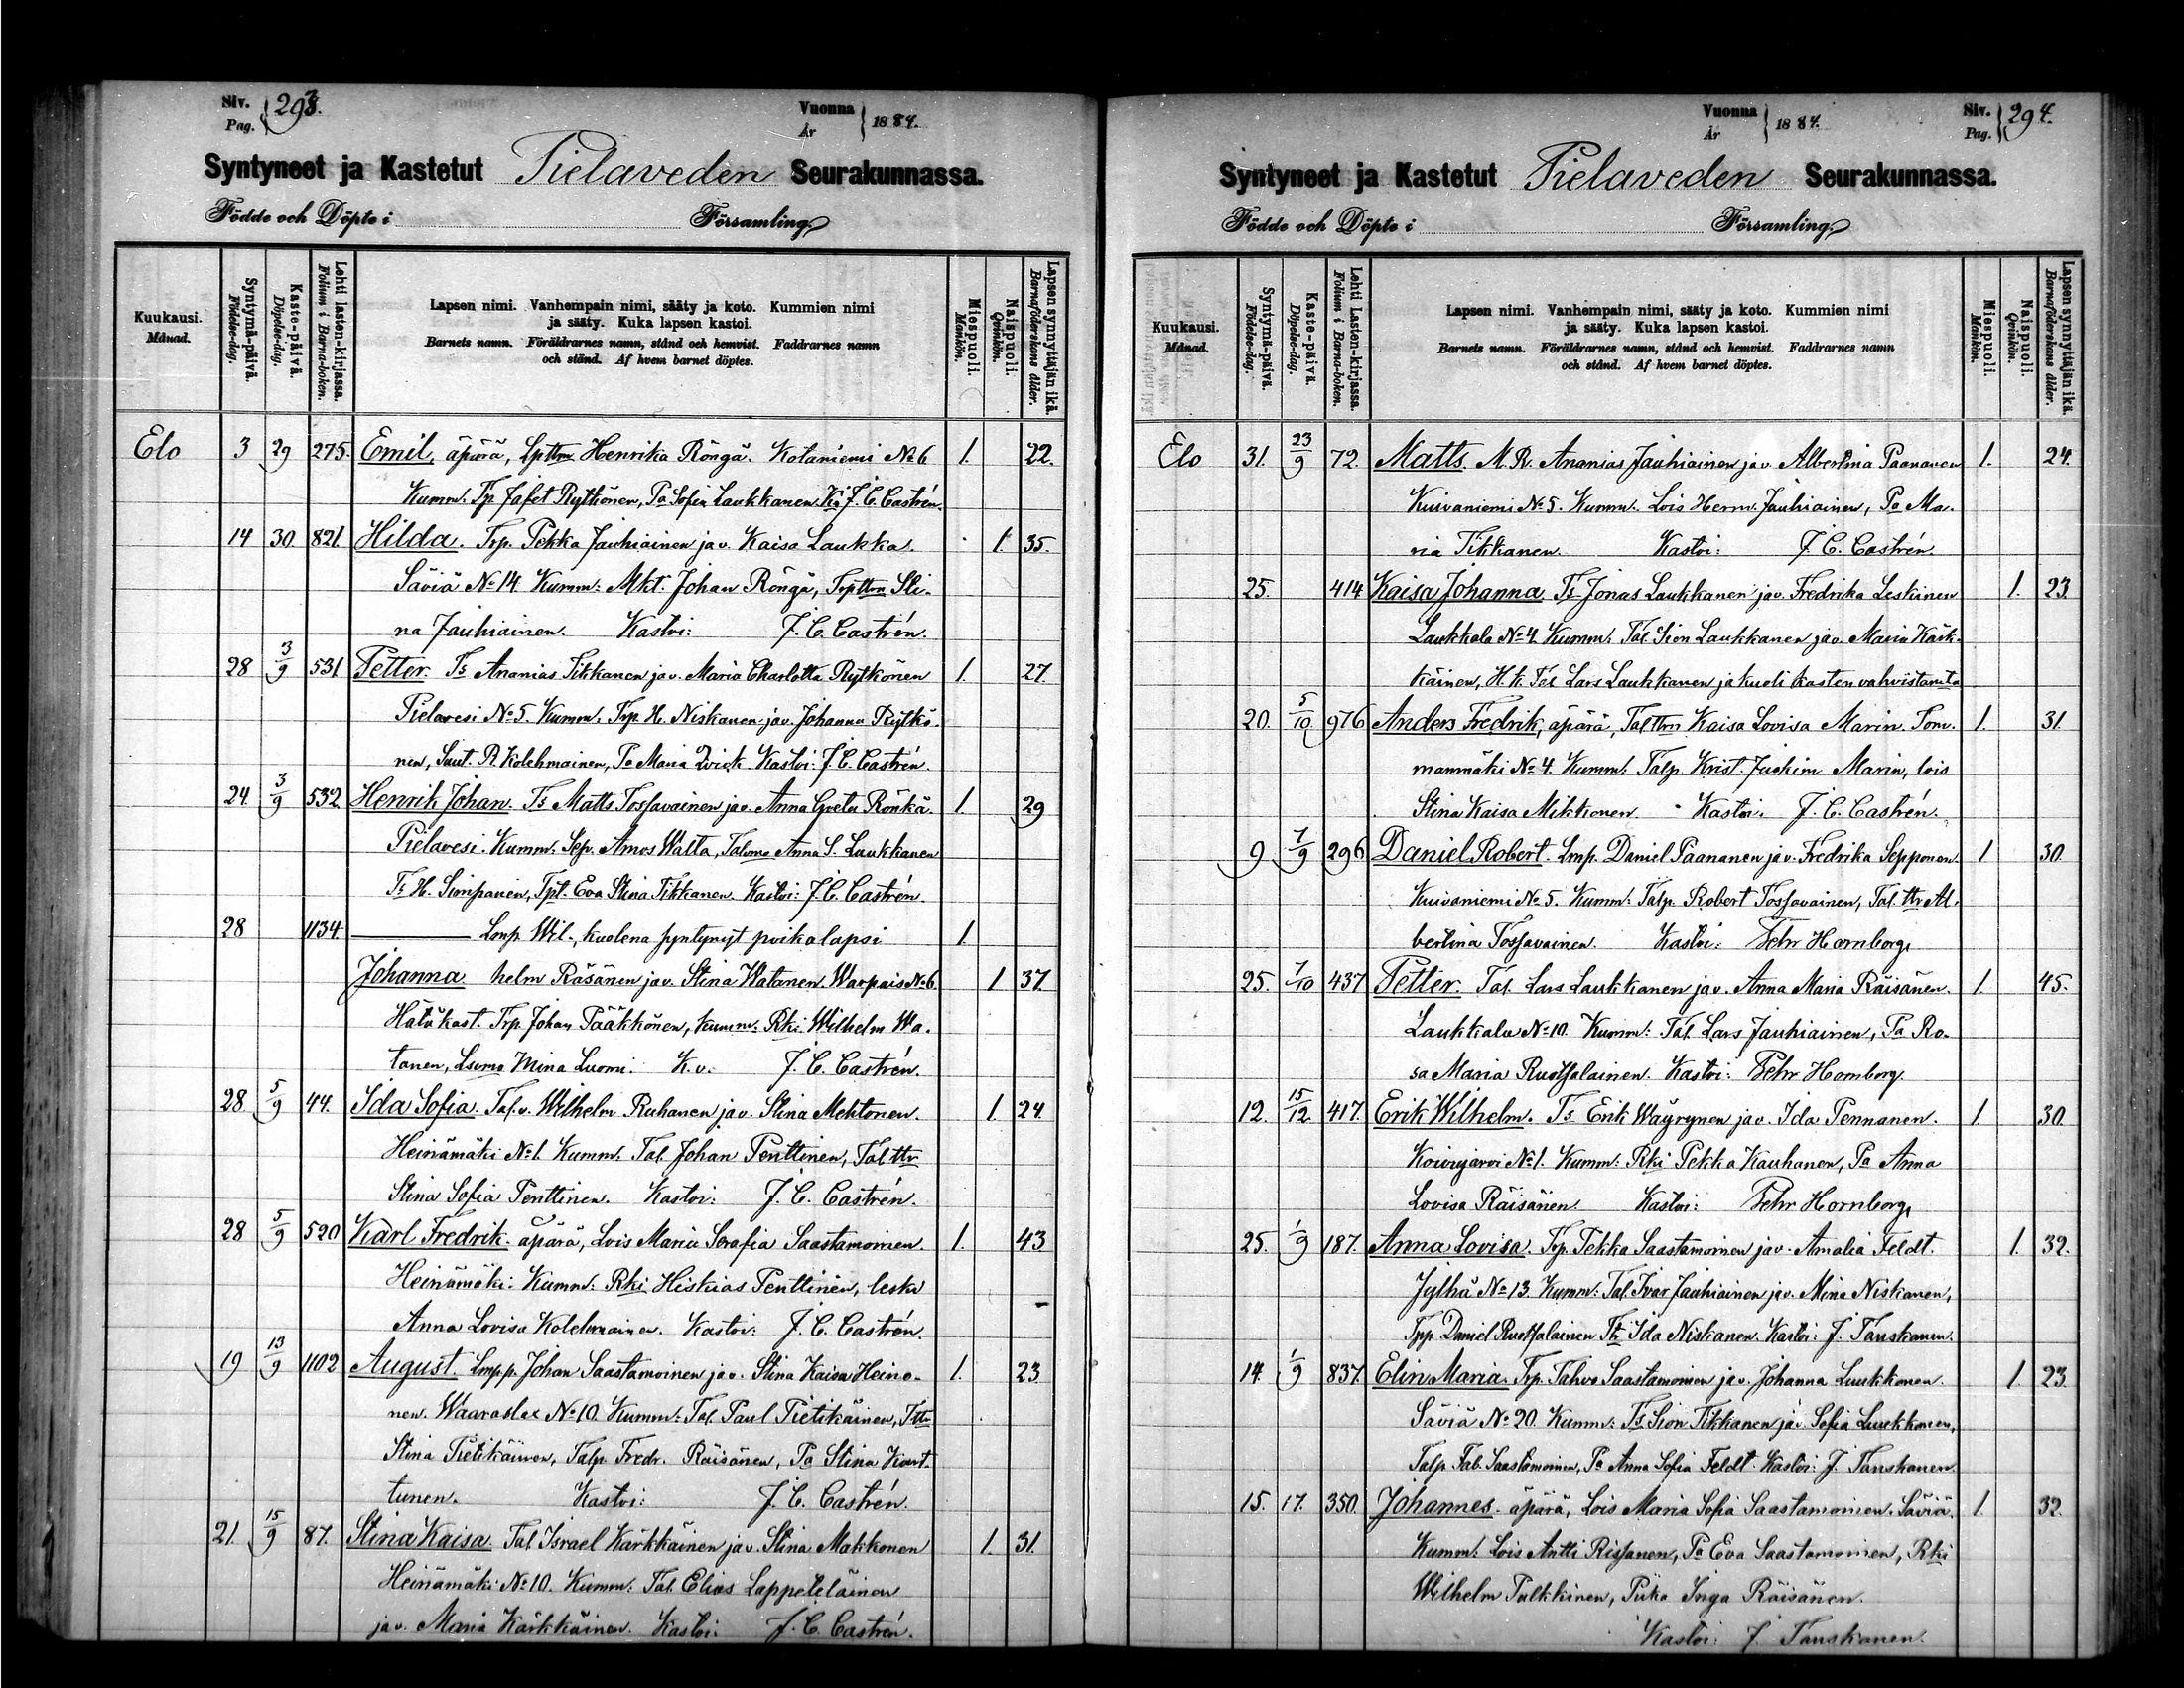 Siv. Pag. 293.
Vuonna År 1884.
Syntyneet ja Kastetut Pielaveden Seurakunnassa.
Födde och Döpte i Församling.
Kuukausi. Månad.
Syntymä-päivä. Födelse-dag.
Kaste-päivä. Döpelse-dag.
Lehti lasten-kirjassa. Folium i Barna-boken.
Lapsen nimi. Vanhempain nimi, sääty ja koto. Kummien nimi
ja sääty. Kuka lapsen kastoi.
Barnets namn. Föräldrarnes namn, stånd och hemvist. Faddrarnes namn
och stånd. Af hvem barnet döptes.
Miespuoli. Mankön.
Naispuoli. Qvinkön.
Lapsen synnyttäjän ikä. Barnaföderskans ålder.
Elo 3 29 275. Emil, äpärä, Lpttm Henrika Röngä. Kotaniemi No 6 1. 22.
Kumm. Tp Jafet Rytkönen, Pa Sofia Laukkanen. Ki J. C. Castrén.
14 30. 821. Hilda. Trp. Pekka Jauhiainen ja v. Kaisa Laukka. 1. 35.
Säviä No 14. Kumm: Mkt. Johan Röngä, Trpttm Sti-
na Jauhiainen. Kastoi: J. C. Castrén.
28 3/9 531 Petter. Ts Ananias Tikkanen ja v. Maria Charlotta Rytkönen 1. 27.
Pielavesi No 5. Kumm. Trp. H. Niskanen ja v. Johanna Rytkö-
nen, Suut. P. Kolehmainen, Pa Maria Qvick. Kastoi: J. C. Castrén.
24. 3/9 532 Henrik Johan. Ts Matts Tossavainen ja v. Anna Greta Rönkä. 1. 29
Pielavesi. Kumm: Sep. Amos Watta, Taloms Anna S. Laukkanen
Ts H. Simpanen, Tpt. Eva Stina Tikkanen. Kastoi: J. C. Castrén.
28 1134. Lmp. Wil-, kuolena syntynyt poikalapsi 1.
Johanna. helm Räsänen ja v. Stina Watanen. Warpais No 6. 1 37.
Hätäkast. Trp. Johan Pääkkönen, kumm: Rki Wilhelm Wa-
tanen, Mina Luomi. K. v. J. C. Castrén.
28 5/9 44. Ida Sofia. Tal. v. Wilhelm Ruhanen ja v. Stina Mehtonen. 1. 24.
Heinämäki No 1. Kumm: Tal. Johan Penttinen, Tal. ttr
Stina Sofia Penttinen. Kastoi: J. C. Castrén.
28 5/9 520 Karl Fredrik. äpärä, Lois Maria Serafia Saastamoinen. 1. 43
Heinämäki. Kumm: Rki Hiskias Penttinen, leski
Anna Lovisa Kolehmainen. Kastoi: J. C. Castrén.
19 13/9 1102 August. Lmpp. Johan Saastamoinen ja v. Stina Kaisa Heino- 1. 23
nen. Waaraslax No 10. Kumm: Tal. Paul Pietikäinen, Tttr
Stina Pietikäinen, Talp. Fredr. Räisänen, Pa Stina Kart-
tunen. Kastoi: J. C. Castrén.
21. 15/9 87. Stina Kaisa. Tal. Israel Kärkkäinen ja v. Stina Makkonen 1. 31.
Heinämäki No 10. Kumm: Tal. Elias Lappeteläinen
ja v. Maria Kärkkäinen. Kastoi: J. C. Castrén.
Vuonna År 1884.
Siv. Pag. 294.
Syntyneet ja Kastetut Pielaveden Seurakunnassa.
Födde och Döpte i Församling.
Kuukausi. Månad.
Syntymä-päivä. Födelse-dag.
Kaste-päivä. Döpelse-dag.
Lehti Lasten-kirjassa. Folium i Barna-boken.
Lapsen nimi. Vanhempain nimi, sääty ja koto. Kummien nimi
ja sääty. Kuka lapsen kastoi.
Barnets namn. Föräldrarnes namn, stånd och hemvist. Faddrarnes namn
och stånd. Af hvem barnet döptes.
Miespuoli. Mankön.
Naispuoli. Qvinkön.
Lapsen synnyttäjän ikä. Barnaföderskans ålder.
Elo 31. 23/9 72. Matts. M. R. Ananias Jauhiainen ja v. Albertina Paananen 1. 24.
Kuivaniemi No 5. Kumm. Lois Herm. Jauhiainen, Pa Ma-
ria Tikkanen. Kastoi: J. C. Castrén
25. 414 Kaisa Johanna Ts Jonas Laukkanen ja v. Fredrika Leskinen 1. 23.
Laukkala No 4. Kumm: Tal. Sion Laukkanen ja v. Maria Kärk-
käinen, H. k. Tal Lars Laukkanen ja kuoli kasten vahvistamata
20. 5/10 976 Anders Fredrik, äpärä, Talttm Kaisa Lovisa Marin. Tom- 1. 31.
manmäki No 4. Kumm: Talp. Krist. Joakim Marin, lois
Stina Kaisa Mikkonen. Kastoi. J. C. Castrén.
9. 7/9 296 Daniel Robert. Lmp. Daniel Paananen ja v. Fredrika Sepponen. 1 30.
Kuivaniemi No 5. Kumm: Talp. Robert Tossavainen, Tal. ttr Al-
bertina Tossavainen. Kastoi: Fehr Hornborg.
25. 7/10 437 Petter. Tal. Lars Laukkanen ja v. Anna Maria Räisänen. 1. 45.
Laukkala No 10. Kumm: Tal. Lars Jauhiainen, Pa Ro-
sa Maria Ruotsalainen. Kastoi: Fehr Hornborg.
12. 15/12 417. Erik Wilhelm. Ts Erik Wäyrynen ja v. Ida Pennanen. 1. 30.
Koivujärvi No 1. Kumm: Rki Pekka Kauhanen, Pa Anna
Lovisa Räisänen. Kastoi: Fehr Hornborg.
25. 1/9 187. Anna Lovisa. Trp. Pekka Saastamoinen ja v. Amalia Feldt. 1. 32.
Jylhä No 13. Kumm: Tal. Ivar Jauhiainen ja v. Mina Niskanen,
Tpp. Daniel Ruotsalainen Ttr Ida Niskanen. Kastoi: J. Tanskanen.
14. 1/9 837. Elin Maria. Trp. Tahvo Saastamoinen ja v. Johanna Luukkonen. 1. 23.
Säviä No 20. Kumm: Ts Sion Tikkanen ja v. Sofia Luukkonen,
Talp. Fab. Saastamoinen, Pa Anna Sofia Feldt. Kastoi: J. Tanskanen.
15. 17. 350. Johannes. äpärä, Lois Maria Sofia Saastamoinen. Säviä. 1. 32.
Kumm: Lois Antti Rissanen, Pa Eva Saastamoinen, Rki
Wilhelm Pulkkinen, Piika Inga Räisänen.
Kastoi: J. Tanskanen.